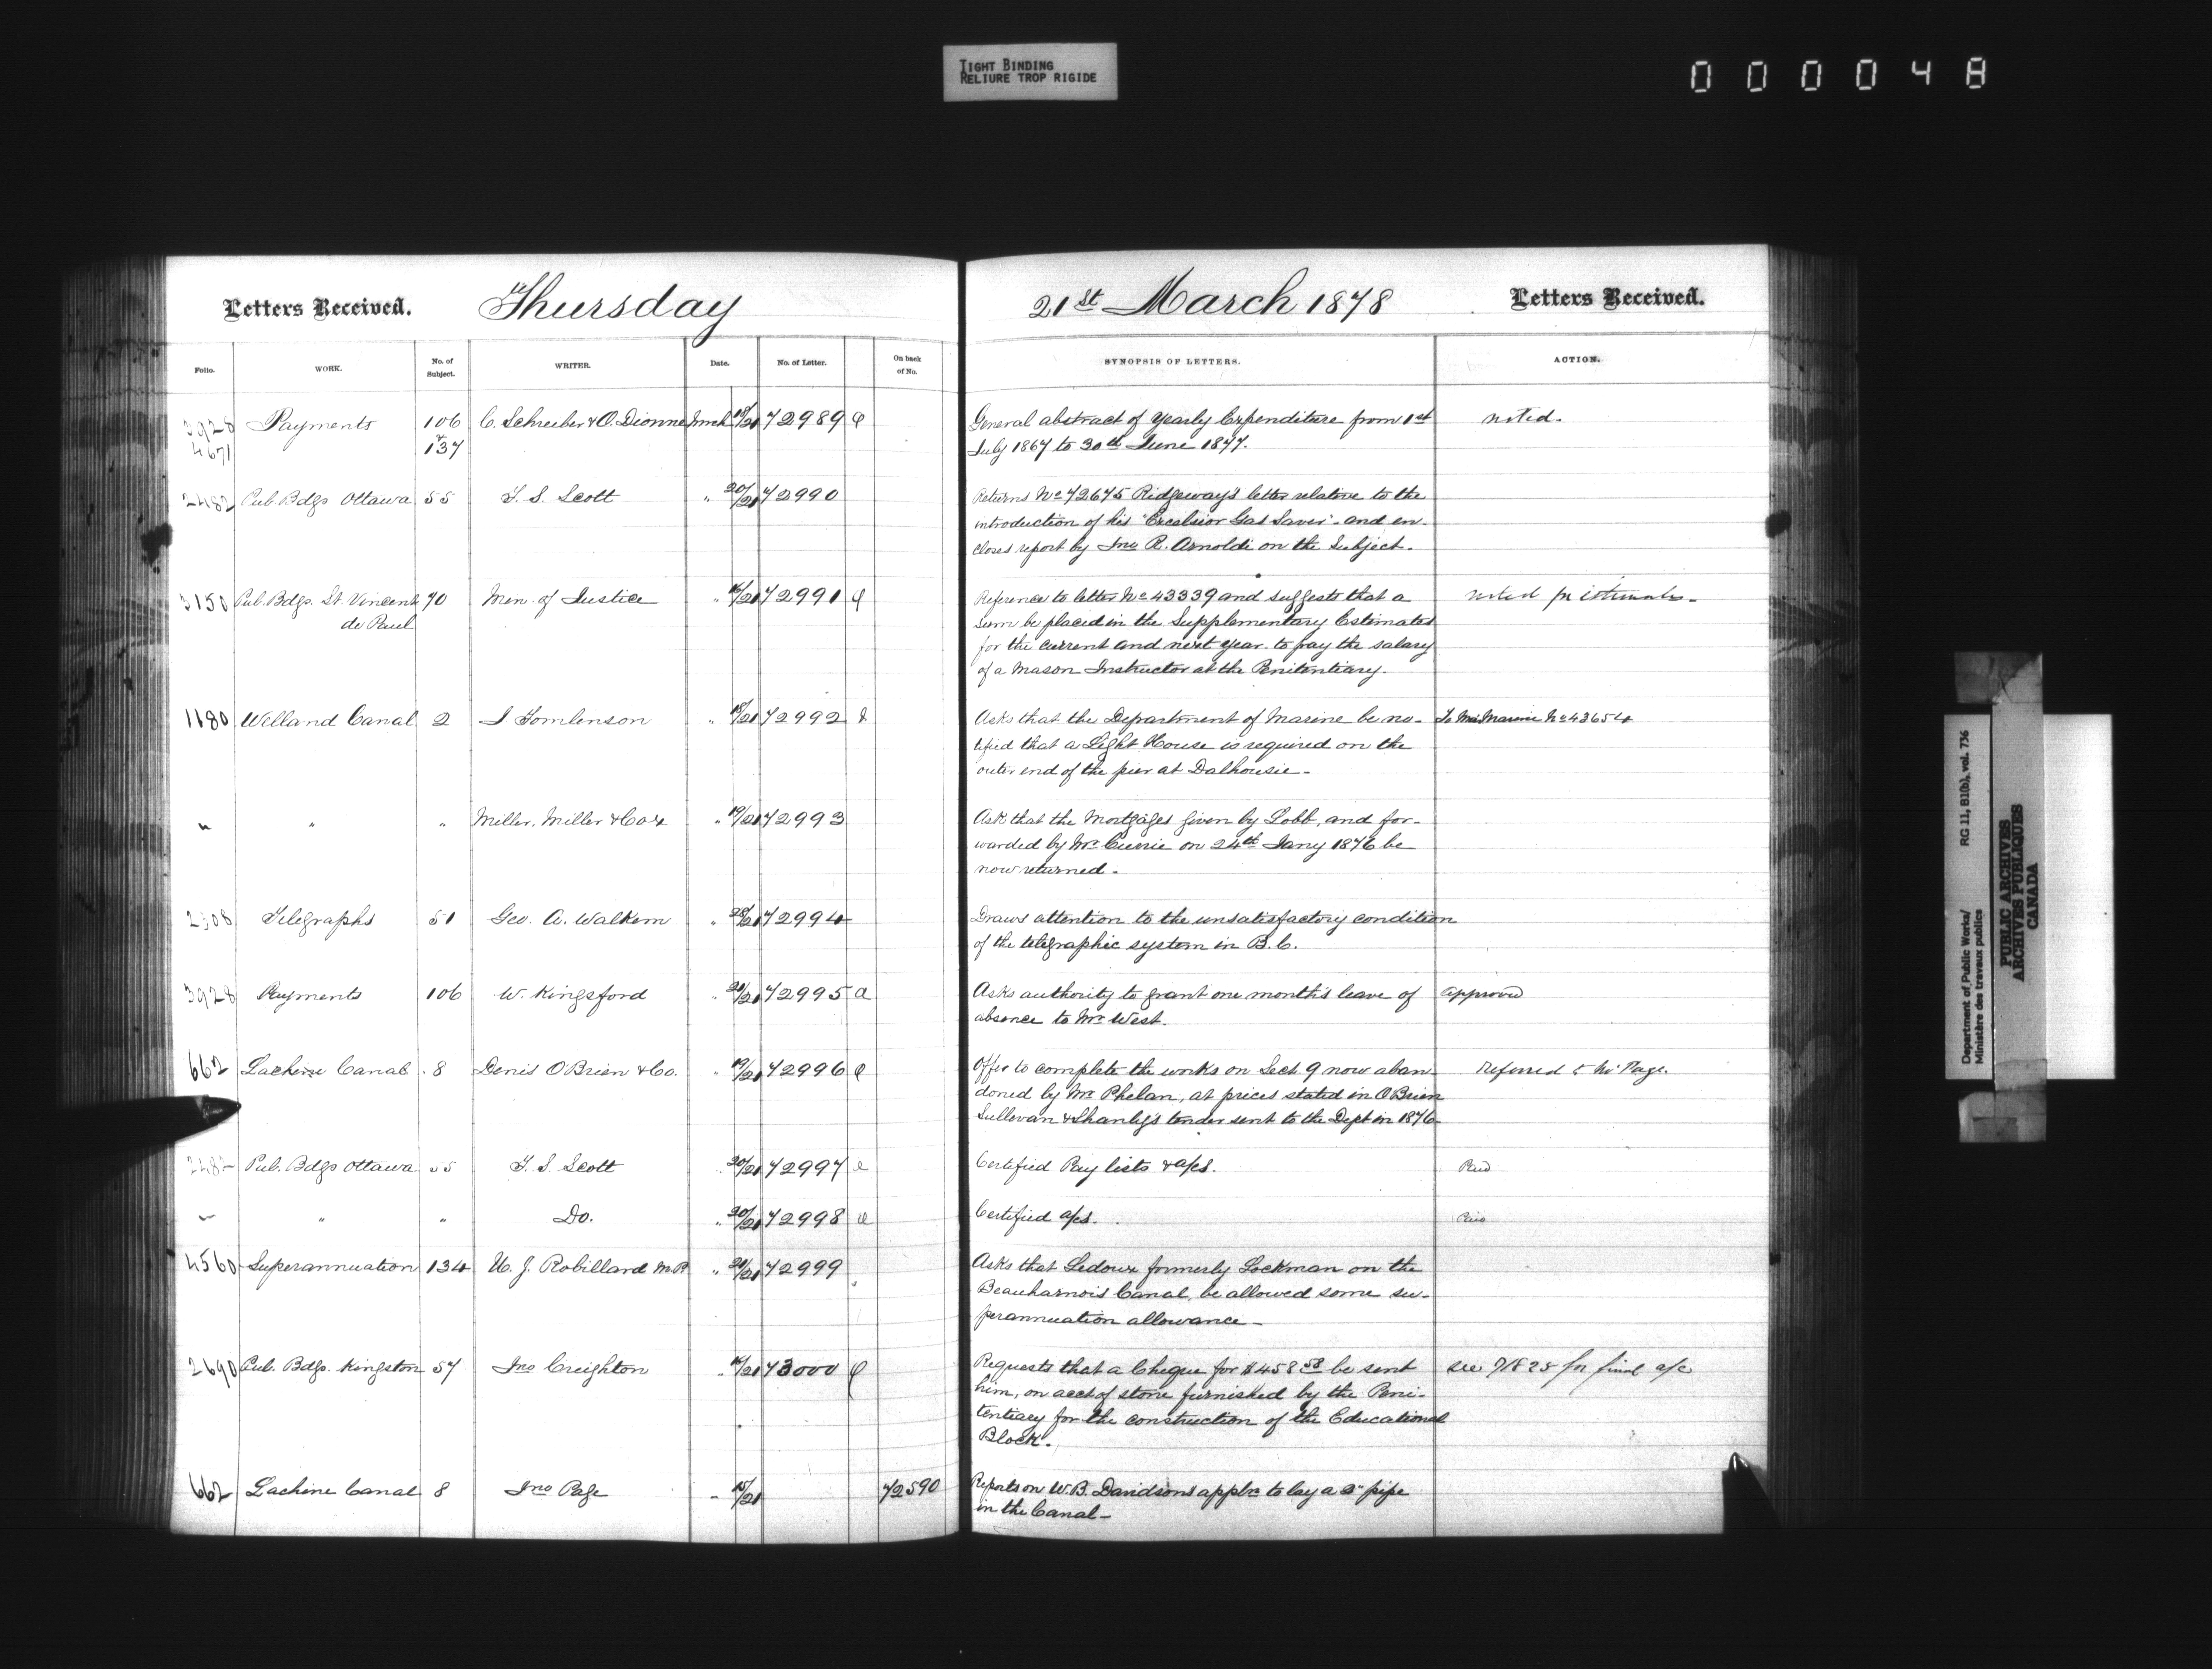 TIGHT BINDING
RELIURE TROP RIGIDE
000048
Letters Received. Thursday
Folio. WORK. No. of Subject. WRITER. Date. No. of Letter. On back of No.
3928 Payments 106 C. Schreiber & O. Dionne Mch 18/21 72989 e
4671 & 137
2482 Pub Bdgs Ottawa 55 T. S. Scott " 20/21 72990
3150 Pub. Bdgs. St. Vincent 70 Min. of Justice " 16/21 72991 e
de Paul
1180 Welland Canal 2 J Tomlinson " 18/21 72992
" " " Miller, Miller & Cox " 19/21 72993
2308 Telegraphs 51 Geo. A. Walkem " 20/21 72994
3928 Payments 106 W. Kingsford " 20/21 72995 a
662 Lachine Canal 8 Denis O'Brien & Co. " 19/21 72996 e
2482 Pub. Bdgs Ottawa 55 T. S. Scott " 20/21 72997 e
" " " Do. " 20/21 72998 e
4560 Superannuation 134 U. J. Robillard M.P. " 20/21 72999
2690 Pub. Bdgs. Kingston 57 Jno Creighton " 16/21 73000 e
662 Lachine Canal 8 Jno Page " 15/21 72590
21st March 1878 Letters Received.
SYNOPSIS OF LETTERS. ACTION.
General abstract of Yearly Expenditure from 1st noted.
July 1867 to 30th June 1877.
Returns No 72675 Ridgeway's letter relative to the
introduction of his "Excelsior Gas Saver" - and en-
closes report by Jno R. Arnoldi on the Subject.
Reference to letter No 43339 and suggests that a noted in estimates -
Sum be placed in the Supplementary Estimates
for the current and next year to pay the salary
of a Mason Instructor at the Penitentiary.
Asks that the Department of Marine be no- To Min Marine No 43654
tified that a Light House is required on the
outer end of the pier at Dalhousie -
Ask that the Mortgages given by Lobb, and for-
warded by Mr Currie on 24th Jany 1876 be
now returned -
Draws attention to the unsatisfactory condition
of the telegraphic system in B.C.
Asks authority to grant one month's leave of approved
absence to Mr West.
Offer to complete the works on Sect. 9 now aban- Referred to Mr Page.
doned by Mr Phelan, at prices stated in O'Brien
Sullivan & Shanly's tender sent to the Dept in 1876-
Certified Pay lists & a/cs. Paid
Certified a/cs. Paid
Asks that Ledoux formerly Lockman on the
Beauharnois Canal, be allowed some su-
perannuation allowance -
Requests that a Cheque for $458 58 be sent see 71825 for final a/c
him, on acct of stone furnished by the Peni-
tentiary for the construction of the Educational
Block.
Reports on W. B. Davidson's applcn to lay a 2" pipe
in the Canal -
Department of Public Works/ RG 11, B1(b), vol. 736
Ministère des travaux publics
PUBLIC ARCHIVES
ARCHIVES PUBLIQUES
CANADA